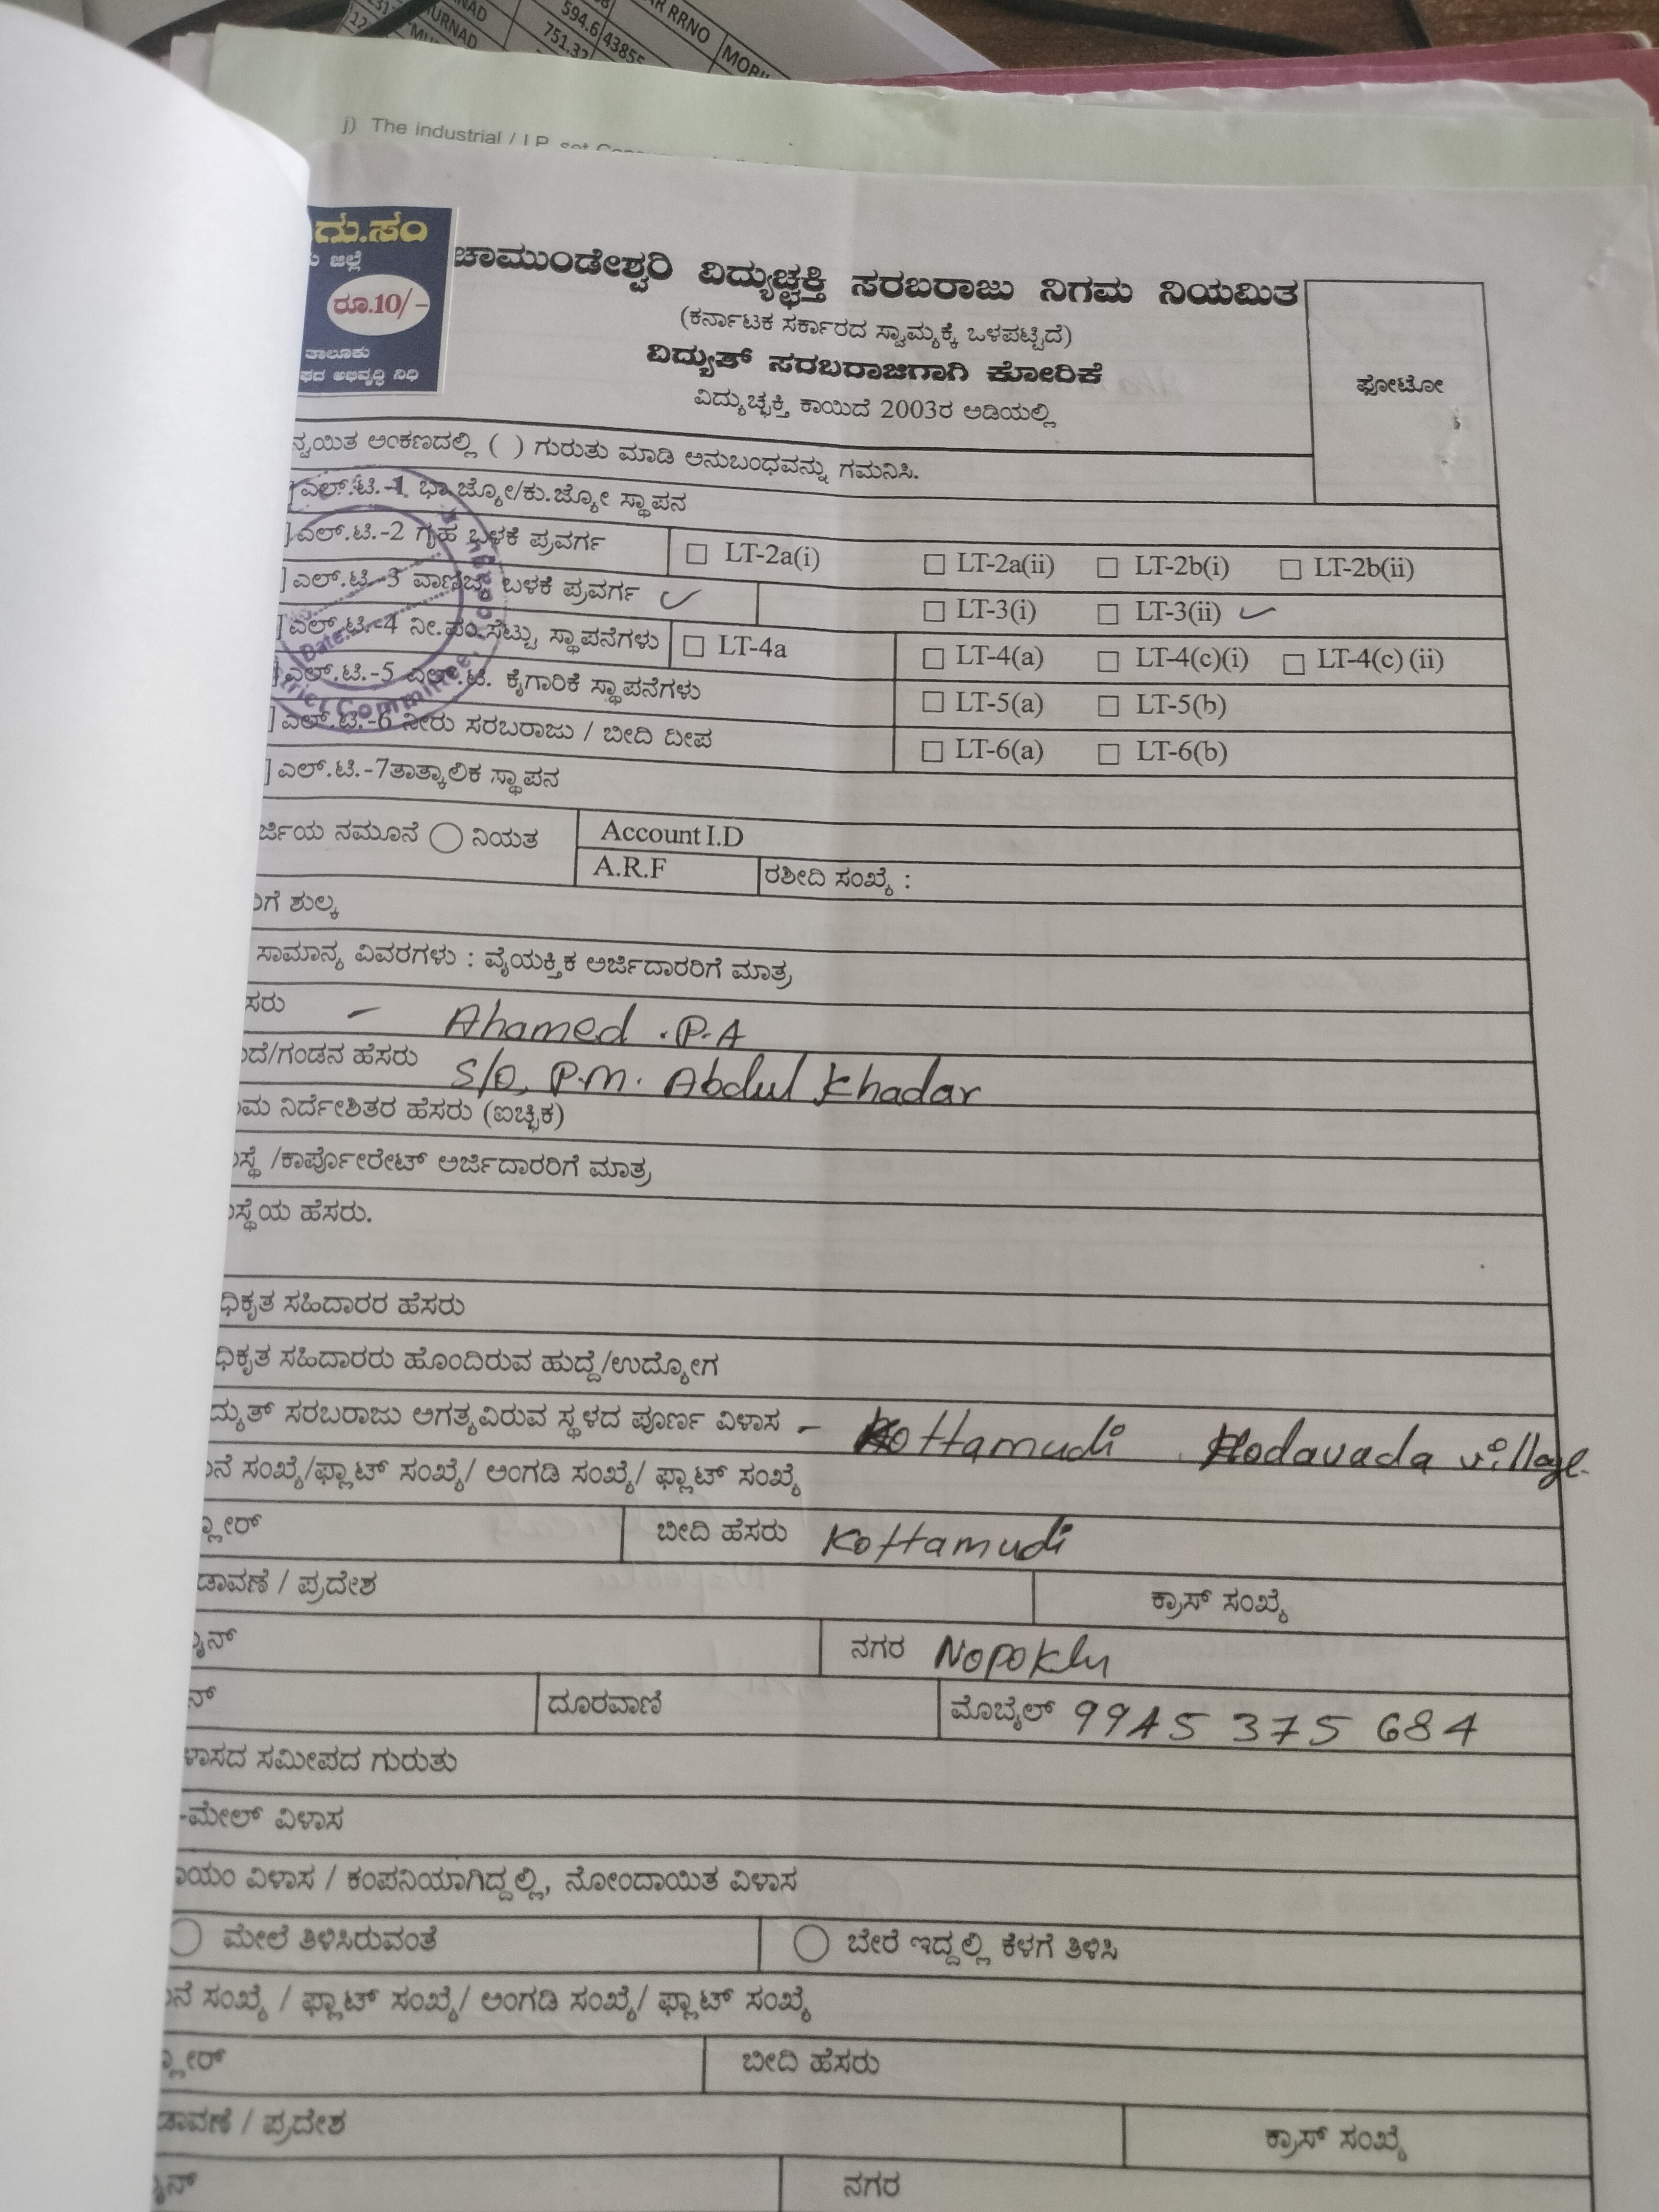 RRNO MOBI
594.6 43855
URNAD 751.32
j) The industrial / I.P. set
ಗು.ಸಂ
ಜಿಲ್ಲೆ
ರೂ.10/-
ತಾಲೂಕು
ಅಭಿವೃದ್ಧಿ ನಿಧಿ
ಚಾಮುಂಡೇಶ್ವರಿ ವಿದ್ಯುಚ್ಛಕ್ತಿ ಸರಬರಾಜು ನಿಗಮ ನಿಯಮಿತ
(ಕರ್ನಾಟಕ ಸರ್ಕಾರದ ಸ್ವಾಮ್ಯಕ್ಕೆ ಒಳಪಟ್ಟಿದೆ)
ವಿದ್ಯುತ್ ಸರಬರಾಜಿಗಾಗಿ ಕೋರಿಕೆ
ವಿದ್ಯುಚ್ಛಕ್ತಿ ಕಾಯಿದೆ 2003ರ ಅಡಿಯಲ್ಲಿ
ಫೋಟೋ
ನ್ವಯಿತ ಅಂಕಣದಲ್ಲಿ ( ) ಗುರುತು ಮಾಡಿ ಅನುಬಂಧವನ್ನು ಗಮನಿಸಿ.
]ಎಲ್.ಟಿ.-1 ಭಾ.ಜ್ಯೋ/ಕು.ಜ್ಯೋ ಸ್ಥಾಪನ
]ಎಲ್.ಟಿ.-2 ಗೃಹ ಬಳಕೆ ಪ್ರವರ್ಗ □ LT-2a(i) □ LT-2a(ii) □ LT-2b(i) □ LT-2b(ii)
]ಎಲ್.ಟಿ.-3 ವಾಣಿಜ್ಯ ಬಳಕೆ ಪ್ರವರ್ಗ ✓ □ LT-3(i) □ LT-3(ii) ✓
]ಎಲ್.ಟಿ.-4 ನೀ.ಪಂ.ಸೆಟ್ಟು ಸ್ಥಾಪನೆಗಳು □ LT-4a □ LT-4(a) □ LT-4(c)(i) □ LT-4(c) (ii)
]ಎಲ್.ಟಿ.-5 ಎಲ್.ಟಿ. ಕೈಗಾರಿಕೆ ಸ್ಥಾಪನೆಗಳು □ LT-5(a) □ LT-5(b)
]ಎಲ್.ಟಿ.-6 ನೀರು ಸರಬರಾಜು / ಬೀದಿ ದೀಪ □ LT-6(a) □ LT-6(b)
]ಎಲ್.ಟಿ.-7ತಾತ್ಕಾಲಿಕ ಸ್ಥಾಪನ
Date
Committee
ರ್ಜಿಯ ನಮೂನೆ ನಿಯತ Account I.D
A.R.F ರಶೀದಿ ಸಂಖ್ಯೆ :
ಗೆ ಶುಲ್ಕ
ಸಾಮಾನ್ಯ ವಿವರಗಳು : ವೈಯಕ್ತಿಕ ಅರ್ಜಿದಾರರಿಗೆ ಮಾತ್ರ
ಸರು - Ahamed .P.A
ದೆ/ಗಂಡನ ಹೆಸರು S/O, P.M. Abdul Khadar
ಮ ನಿರ್ದೇಶಿತರ ಹೆಸರು (ಐಚ್ಛಿಕ)
ಸ್ಥೆ /ಕಾರ್ಪೋರೇಟ್ ಅರ್ಜಿದಾರರಿಗೆ ಮಾತ್ರ
ಸ್ಥೆಯ ಹೆಸರು.
ಧಿಕೃತ ಸಹಿದಾರರ ಹೆಸರು
ಧಿಕೃತ ಸಹಿದಾರರು ಹೊಂದಿರುವ ಹುದ್ದೆ/ಉದ್ಯೋಗ
ದ್ಯುತ್ ಸರಬರಾಜು ಅಗತ್ಯವಿರುವ ಸ್ಥಳದ ಪೂರ್ಣ ವಿಳಾಸ - Kottamudi Hodavada village.
ನೆ ಸಂಖ್ಯೆ/ಫ್ಲಾಟ್ ಸಂಖ್ಯೆ/ ಅಂಗಡಿ ಸಂಖ್ಯೆ/ ಫ್ಲಾಟ್ ಸಂಖ್ಯೆ
ಫ್ಲೋರ್ ಬೀದಿ ಹೆಸರು Kottamudi
ಡಾವಣೆ / ಪ್ರದೇಶ ಕ್ರಾಸ್ ಸಂಖ್ಯೆ
ನ್ ನಗರ Nopoklu
ನ್ ದೂರವಾಣಿ ಮೊಬೈಲ್ 9945 375 684
ಳಾಸದ ಸಮೀಪದ ಗುರುತು
-ಮೇಲ್ ವಿಳಾಸ
ಯಂ ವಿಳಾಸ / ಕಂಪನಿಯಾಗಿದ್ದಲ್ಲಿ, ನೋಂದಾಯಿತ ವಿಳಾಸ
ಮೇಲೆ ತಿಳಿಸಿರುವಂತೆ ಬೇರೆ ಇದ್ದಲ್ಲಿ ಕೆಳಗೆ ತಿಳಿಸಿ
ನೆ ಸಂಖ್ಯೆ / ಫ್ಲಾಟ್ ಸಂಖ್ಯೆ/ ಅಂಗಡಿ ಸಂಖ್ಯೆ/ ಫ್ಲಾಟ್ ಸಂಖ್ಯೆ
ಫ್ಲೋರ್ ಬೀದಿ ಹೆಸರು
ಡಾವಣೆ / ಪ್ರದೇಶ ಕ್ರಾಸ್ ಸಂಖ್ಯೆ
ನ್ ನಗರ